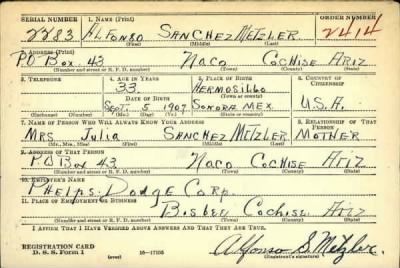 SERIAL NUMBER 1. NAME (Print) ORDER NUMBER
2283 ALFONSO SANCHEZ METZLER 2414
(First) (Middle) (Last)
2. ADDRESS (Print)
PO Box. 43 Naco Cochise Ariz
(Number and street or R. F. D. number) (Town) (County) (State)
3. TELEPHONE 4. AGE IN YEARS 5. PLACE OF BIRTH 6. COUNTRY OF CITIZENSHIP
33 HERMOSILLO
DATE OF BIRTH (Town or county)
Sept. 5 1907 SONORA MEX. U.S.A.
(Exchange) (Number) (Mo.) (Day) (Yr.) (State or country)
7. NAME OF PERSON WHO WILL ALWAYS KNOW YOUR ADDRESS 8. RELATIONSHIP OF THAT PERSON
MRS. Julia SANCHEZ METZLER MOTHER
(Mr., Mrs., Miss) (First) (Middle) (Last)
9. ADDRESS OF THAT PERSON
P.O Box 43 Naco Cochise Ariz
(Number and street or R. F. D. number) (Town) (County) (State)
10. EMPLOYER'S NAME
Phelps-Dodge Corp.
11. PLACE OF EMPLOYMENT OR BUSINESS
Bisbee Cochise Ariz
(Number and street or R. F. D. number) (Town) (County) (State)
I AFFIRM THAT I HAVE VERIFIED ABOVE ANSWERS AND THAT THEY ARE TRUE.
REGISTRATION CARD
D. S. S. Form 1 16-17105 Alfonso S. Metzler.
(Registrant's signature)